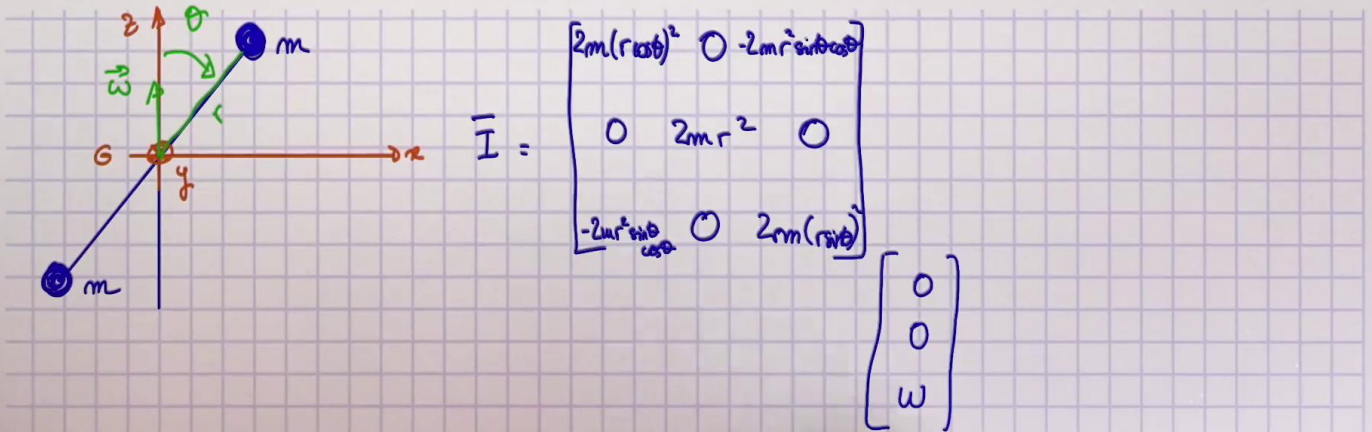 z θ m
ω⃗ r
G x
y
m
I̿ =
2m(rcosθ)² 0 -2mr²sinθcosθ
0 2mr² 0
-2mr²sinθ cosθ 0 2m(rsinθ)²
0
0
ω